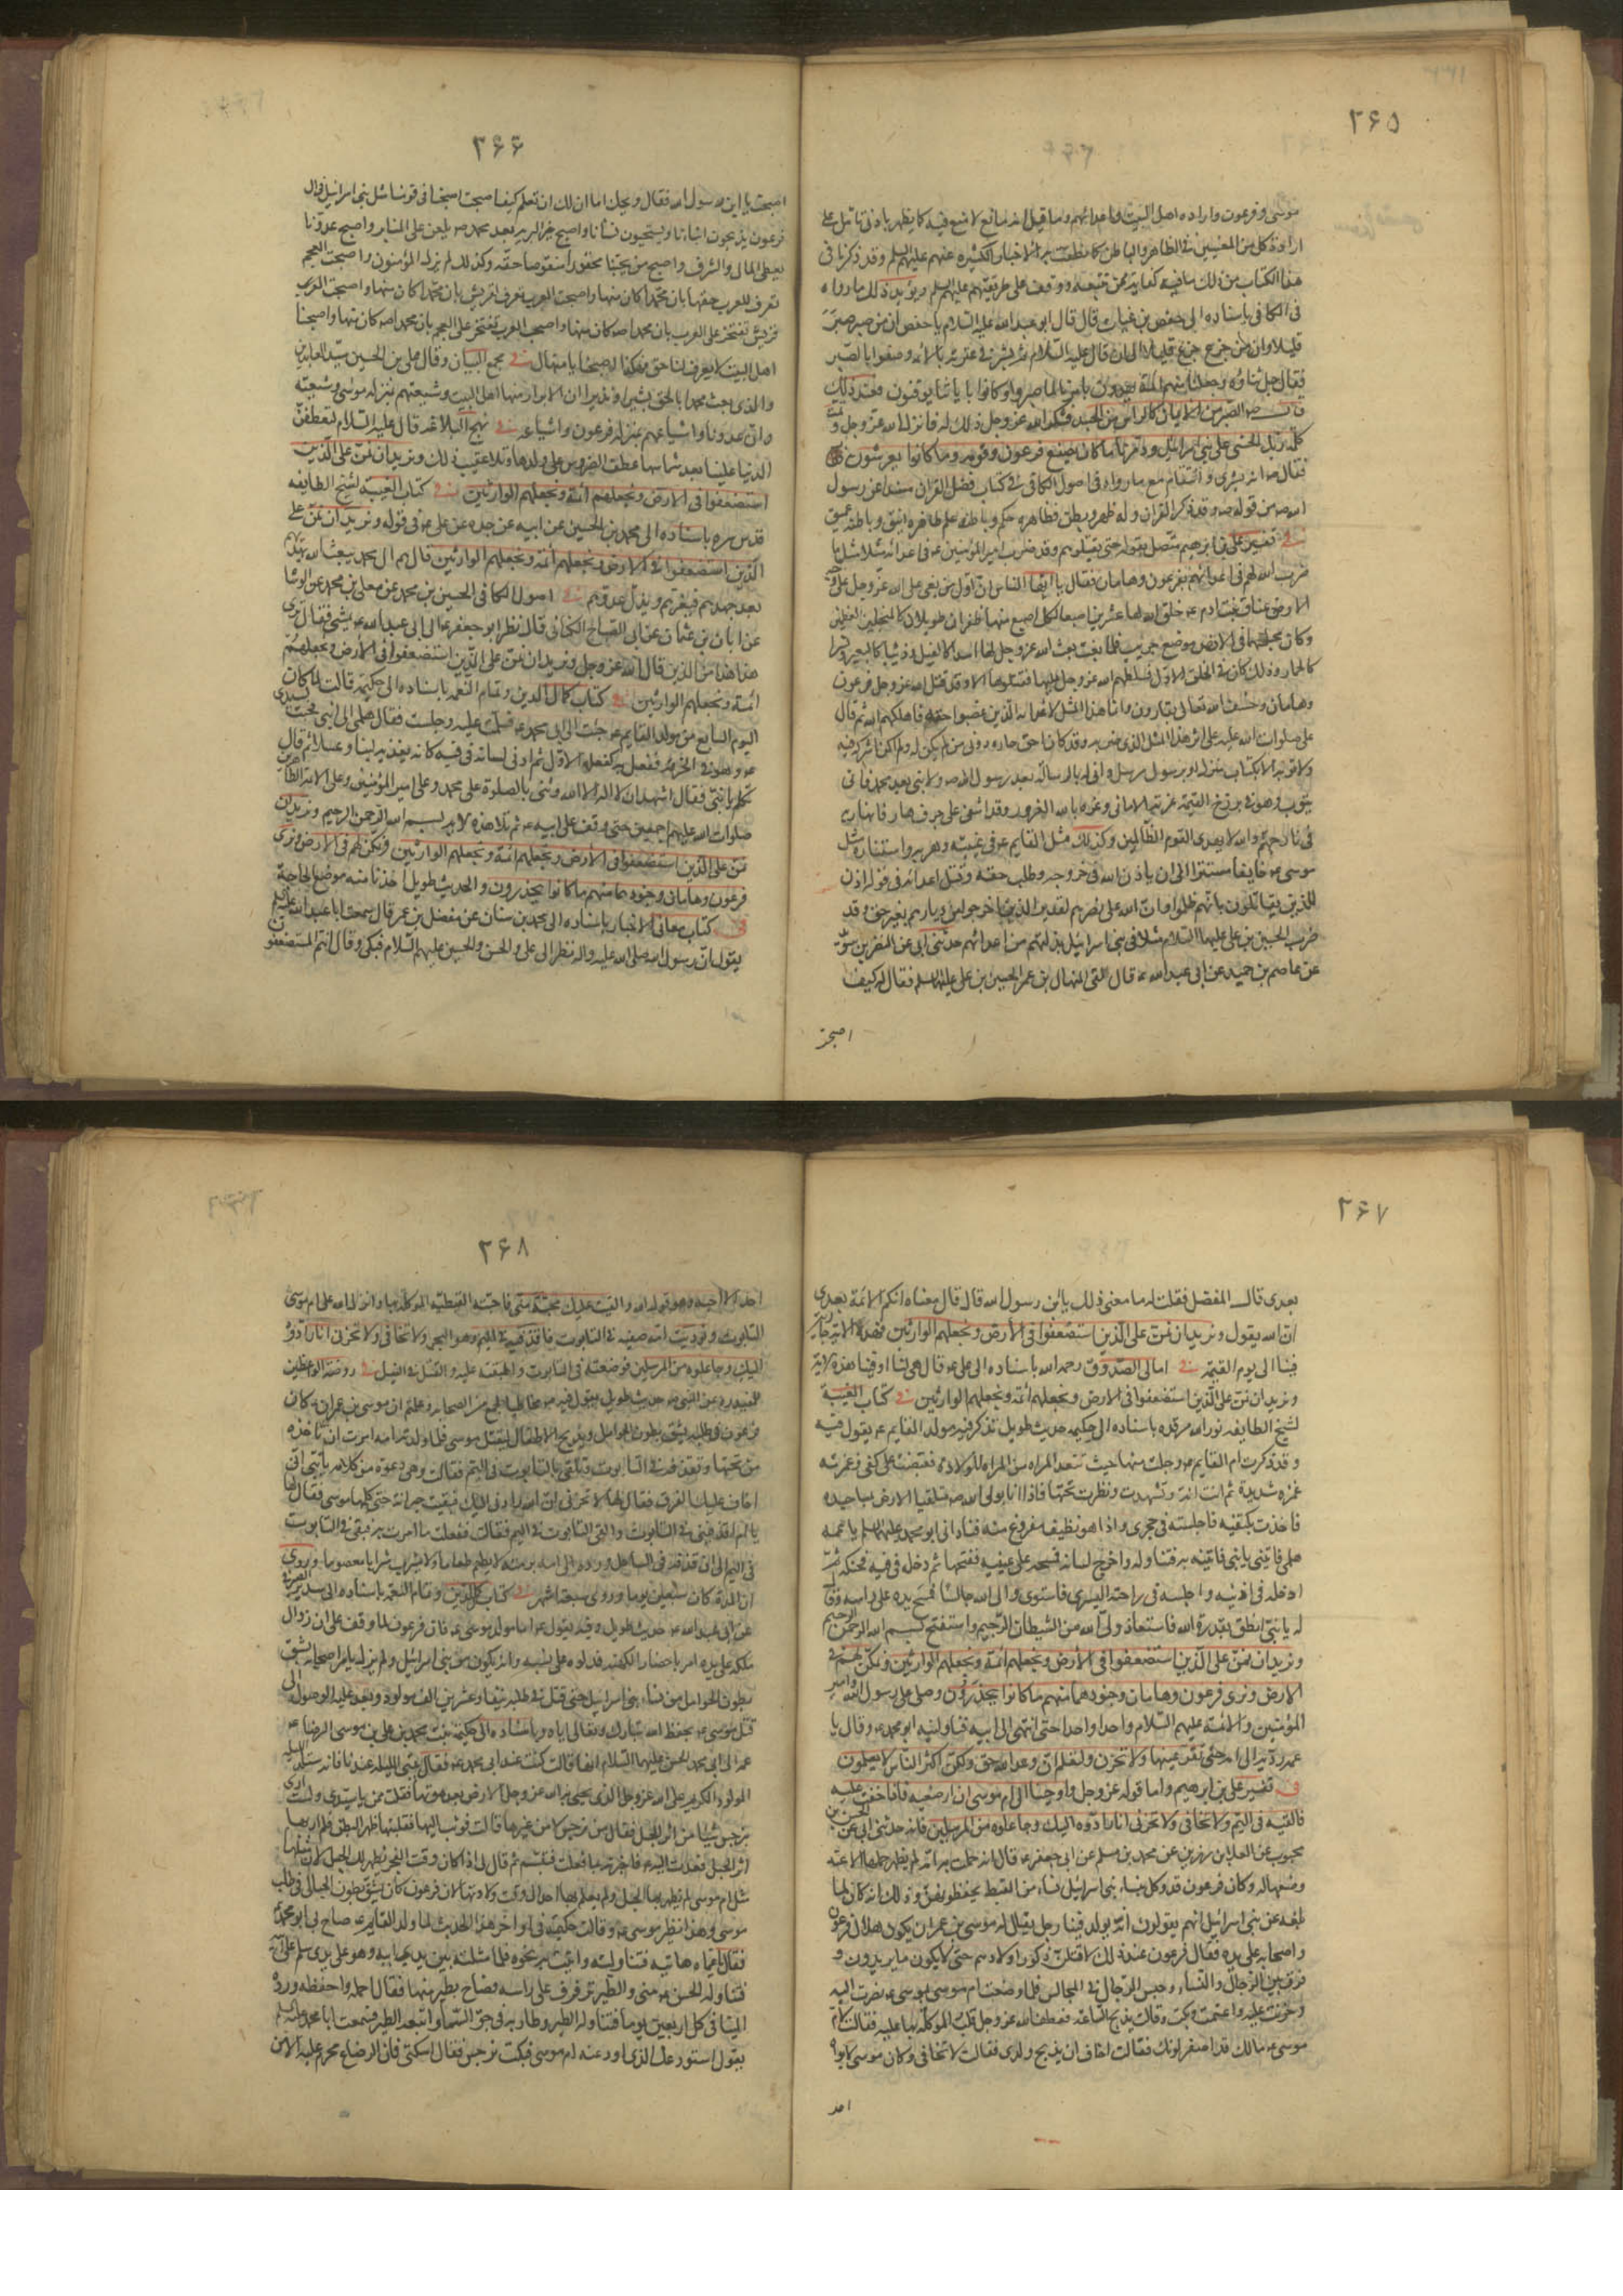 ۲۶۵
موسى وفرعون واراده اهل البيت واعدائهم وما قيل انه مانع لا منع فيه كما يظهر بادنى تامل على
ارادة كل من المعنيين فى الظاهر والباطن كما نطقت به الاخبار الكثيره عنهم عليهم السلم وقد ذكرنا فى
هذا الكتاب من ذلك ما فيه كفاية لمن تتبعه ووقف على طريقتهم عليهم السلم ويؤيد ذلك ما رواه
فى الكافى باسناده الى حفص بن غياث قال قال ابو عبد الله عليه السلام يا حفص ان من صبر صبر
قليلا وان من جزع جزع قليلا الى ان قال عليه السلام ثم بشر فى عترته بالائمه وصفوا بالصبر
فقال جل ثناؤه وجعلنا منهم ائمة يهدون بامرنا لما صبروا وكانوا باياتنا يوقنون فعند ذلك
قال صه الصبر من الايمان كالراس من الجسد فشكر الله عز وجل ذلك له فانزل الله عز وجل وتمت
كلمة ربك الحسنى على بنى اسرائيل ودمرنا ما كان يصنع فرعون وقومه وما كانوا يعرشون
فقال صه انه بشرى وانتقام مع ما رواه فى اصول الكافى فى كتاب فضل القران مسندا عن رسول
الله صه من قوله صه وقد ذكر القران وله ظهر وبطن فظاهره حكم وباطنه علم ظاهره انيق وباطنه عميق
فى تفسير على بن ابرهيم متصل بقوله حتى يقتلوهم وقد ضرب امير المؤمنين ع فى اعدائه مثلا مثل ما
ضرب الله لهم فى اعدائهم بفرعون وهامان فقال يا ايها الناس ان اول من بغى على الله عز وجل على وجه
الارض عناق بنت ادم ع خلق الله لها عشرين اصبعا لكل اصبع منها ظفران طويلان كالمنجلين العظيمين
وكان مجلسها فى الارض موضع جريب فلما بغت بعث الله عز وجل لها اسدا كالفيل وذئبا كالبعير ونسرا
كالحمار وذلك كان فى الخلق الاول فسلطهم الله عز وجل عليها فقتلوها الا وقد قتل الله عز وجل فرعون
وهامان وخسف الله تعالى بقارون وانما هذا المثل لاعدائه الذين غصبوا حقه فاهلكهم الله ثم قال
على صلوات الله عليه على اثر هذا المثل الذى ضربه وقد كان لى حق حازه دونى من لم يكن له ولم اكن اشركه فيه
ولا توبة له الا بكتاب منزل او برسول مرسل وانى له بالرسالة بعد رسول الله صه ولا نبى بعد محمد فانى
يتوب وهو فى برزخ القيمة غرته الامانى وغره بالله الغرور وقد اشفى على جرف هار فانهار به
فى نار جهنم والله لا يهدى القوم الظالمين وكذلك مثل القايم ع فى غيبته وهربه واستتاره مثل
موسى ع خايفا مستترا الى ان ياذن الله فى خروجه وطلب حقه وقتل اعدائه فى قوله اذن
للذين يقاتلون بانهم ظلموا وان الله على نصرهم لقدير الذين اخرجوا من ديارهم بغير حق وقد
ضرب الحسين بن على عليهما السلام مثلا فى بنى اسرائيل بذلتهم من اعدائهم حدثنى ابى عن النضر بن سويد
عن عاصم بن حميد عن ابى عبد الله ع قال لقى المنهال بن عمر الحسين بن على عليهما السلم فقال له كيف
اصبحت
۲۶۶
اصبحت يا ابن رسول الله فقال ويحك اما ان لك ان تعلم كيف اصبحت اصبحنا فى قومنا مثل بنى اسرائيل فى ال
فرعون يذبحون ابناءنا ويستحيون نساءنا واصبح خير البرية بعد محمد صه يلعن على المنابر واصبح عدونا
يعطى المال والشرف واصبح من يحبنا محقورا منقوصا حقه وكذلك لم يزل المؤمنون واصبحت العجم
تعرف للعرب حقها بان محمدا كان منها واصبحت العرب تعرف لقريش بان محمدا كان منها واصبحت العرب
قريش تفتخر على العرب بان محمدا صه كان منها واصبحت العرب تفتخر على العجم بان محمدا صه كان منها واصبحنا
اهل البيت لا يعرف لنا حق فهكذا اصبحنا يا منهال فى مجمع البيان وقال على بن الحسين سيد العابدين
والذى بعث محمدا بالحق بشيرا ونذيرا ان الابرار منا اهل البيت وشيعتهم بمنزلة موسى وشيعته
وان عدونا واشياعهم بمنزلة فرعون واشياعه فى نهج البلاغه قال عليه السلام لتعطفن
الدنيا علينا بعد شماسها عطف الضروس على ولدها وتلا عقيب ذلك ونريد ان نمن على الذين
استضعفوا فى الارض ونجعلهم ائمة ونجعلهم الوارثين فى كتاب الغيبة لشيخ الطايفه
قدس سره باسناده الى محمد بن الحسين عن ابيه عن جده عن على ع فى قوله ونريد ان نمن على
الذين استضعفوا فى الارض ونجعلهم ائمة ونجعلهم الوارثين قال هم ال محمد يبعث الله مهديهم
بعد جهدهم فيعزهم ويذل عدوهم فى اصول الكافى الحسين بن محمد عن معلى بن محمد عن الوشا
عن ابان بن عثمان عن ابى الصباح الكنانى قال نظر ابو جعفر ع الى ابى عبد الله ع يمشى فقال ترى
هذا هذا من الذين قال الله عز وجل ونريد ان نمن على الذين استضعفوا فى الارض ونجعلهم
ائمة ونجعلهم الوارثين فى كتاب كمال الدين وتمام النعمه باسناده الى حكيمه قالت لما كان
اليوم السابع من مولد القايم ع جئت الى ابى محمد ع فسلمت عليه وجلست فقال هلمى الى ابنى فجئت بسيدى
ع وهو فى الخرقه ففعل به كفعله الاول ثم ادلى لسانه فى فيه كانه يغذيه لبنا وعسلا ثم قال
تكلم يا بنى فقال اشهد ان لا اله الا الله وثنى بالصلوة على محمد وعلى امير المؤمنين وعلى الائمة الطاهرين
صلوات الله عليهم اجمعين حتى وقف على ابيه ع ثم تلا هذه الايه بسم الله الرحمن الرحيم ونريد ان
نمن على الذين استضعفوا فى الارض ونجعلهم ائمة ونجعلهم الوارثين ونمكن لهم فى الارض ونرى
فرعون وهامان وجنودهما منهم ما كانوا يحذرون والحديث طويل اخذنا منه موضع الحاجة
فى كتاب معانى الاخبار باسناده الى محمد بن سنان عن مفضل بن عمر قال سمعت ابا عبد الله عليه السلم
يقول ان رسول الله صلى الله عليه واله نظر الى على والحسن والحسين عليهم السلام فبكى وقال انتم المستضعفون
۲۶۷
بعدى قال المفضل فقلت له ما معنى ذلك يا بن رسول الله قال قال معناه انكم الائمة بعدى
ان الله يقول ونريد ان نمن على الذين استضعفوا فى الارض ونجعلهم الوارثين فهذه الاية جارية
فينا الى يوم القيمة فى امالى الصدوق رحمه الله باسناده الى على ع قال هى لنا او فينا هذه الاية
ونريد ان نمن على الذين استضعفوا فى الارض ونجعلهم ائمة ونجعلهم الوارثين فى كتاب الغيبة
لشيخ الطايفه نور الله مرقده باسناده الى حكيمه حديث طويل تذكر فيه مولد القايم ع يقول فيه
وقد ذكرت ام القايم ع وجلست منها حيث تقعد المراه من المراه للولاده فقبضت على كفى وغمزته
غمزه شديدة ثم انت انة وتشهدت ونظرت تحتها فاذا انا بولى الله صه متلقيا الارض بمساجده
فاخذت بكتفيه فاجلسته فى حجرى واذا هو نظيف مفروغ منه فنادانى ابو محمد عليه السلم يا عمه
هلمى فاتينى بابنى فاتيته به فتناوله واخرج لسانه فمسحه على عينيه ففتحها ثم دخله فى فيه فحنكه ثم
ادخله فى اذنيه واجلسه فى راحته اليسرى فاستوى ولى الله جالسا فمسح يده على راسه وقال
له يا بنى انطق بقدرة الله فاستعاذ ولى الله من الشيطان الرجيم واستفتح بسم الله الرحمن الرحيم
ونريد ان نمن على الذين استضعفوا فى الارض ونجعلهم ائمة ونجعلهم الوارثين ونمكن لهم فى
الارض ونرى فرعون وهامان وجنودهما منهم ما كانوا يحذرون وصلى على رسول الله وامير
المؤمنين والائمة عليهم السلام واحدا واحدا حتى انتهى الى ابيه فناولنيه ابو محمد ع وقال يا
عمه رديه الى امه حتى تقر عينها ولا تحزن ولتعلم ان وعد الله حق ولكن اكثر الناس لا يعلمون
فى تفسير على بن ابرهيم واما قوله عز وجل واوحينا الى ام موسى ان ارضعيه فاذا خفت عليه
فالقيه فى اليم ولا تخافى ولا تحزنى انا رادوه اليك وجاعلوه من المرسلين فانه حدثنى ابى عن الحسن بن
محبوب عن العلا بن رزين عن محمد بن مسلم عن ابى جعفر ع قال انه حملت به امه لم يظهر حملها الا عند
وضعها له وكان فرعون قد وكل بنساء بنى اسرائيل نساء من القبط يحفظونهن وذلك انه كان لما
بلغه عن بنى اسرائيل انهم يقولون انه يولد فينا رجل يقال له موسى بن عمران يكون هلاك فرعون
واصحابه على يده فقال فرعون عند ذلك لاقتلن ذكور اولادهم حتى لا يكون ما يريدون و
فرق بين الرجال والنساء وحبس الرجال فى المجالس فلما وضعت ام موسى بموسى ع نظرت اليه
وحزنت عليه واغتمت وبكت وقالت يذبح الساعة فعطف الله عز وجل قلب الموكلة بها عليه فقالت لام
موسى ع ما لك قد اصفر لونك فقالت اخاف ان يذبح ولدى فقالت لا تخافى وكان موسى لا يراه
احد
۲۶۸
احد الا احبه وهو قول الله والقيت عليك محبة منى فاحبته القبطية الموكلة بها وانزل الله على ام موسى
التابوت ونوديت امه ضعيه فى التابوت فاقذفيه فى اليم وهو البحر ولا تخافى ولا تحزنى انا رادوه
اليك وجاعلوه من المرسلين فوضعته فى التابوت واطبقته عليه والقته فى النيل فى روضة الواعظين
للمفيد ره عن النبى صه حديث طويل يقول فيه مخاطبا لجمع من الصحابه وعلمتم ان موسى بن عمران ع كان
فرعون فى طلبه يشق بطون الحوامل ويذبح الاطفال ليقتل موسى فلما ولدته امه امرت ان تاخذه
من تحتها وتقذفه فى التابوت وتلقى بالتابوت فى اليم فقالت وهى ذعرة من كلامه يا بنى انى
اخاف عليك الغرق فقال لها لا تحزنى ان الله رادنى اليك فبقيت حيرانة حتى كلمها موسى فقال لها
يا ام اقذفينى فى التابوت والقى التابوت فى اليم فقالت ففعلت ما امرت به فبقى فى التابوت
فى اليم الى ان قذفه فى الساحل ورده الى امه برمته لا يطعم طعاما ولا يشرب شرابا معصوما وروى
ان المدة كان سبعين يوما وروى سبعة اشهر فى كتاب كمال الدين وتمام النعمه باسناده الى سدير الصيرفى
عن ابى عبد الله ع حديث طويل وفيه يقول ع اما مولد موسى ع فان فرعون لما وقف على ان زوال
ملكه على يده امر باحضار الكهنه فدلوه على نسبه وانه يكون من بنى اسرائيل ولم يزل يامر اصحابه بشق
بطون الحوامل من نساء بنى اسرائيل حتى قتل فى طلبه نيفا وعشرين الف مولود وتعذر عليه الوصول الى
قتل موسى ع بحفظ الله تبارك وتعالى اياه وباسناده الى حكيمة بنت محمد بن على بن موسى الرضا ع
عمة ابى محمد الحسن عليهما السلام انها قالت كنت عند ابى محمد ع فقال بيتى الليلة عندنا فانه سيلد الليلة
المولود الكريم على الله عز وجل الذى يحيى به الله عز وجل الارض بعد موتها فقلت ممن يا سيدى ولست ارى
بنرجس شيئا من اثر الحبل فقال من نرجس لا من غيرها قالت فوثبت اليها فقلبتها ظهر البطن فلم ار بها
اثر الحبل فعدت اليه ع فاخبرته بما فعلت فتبسم ثم قال لى اذا كان وقت الفجر يظهر لك الحبل لان مثلها
مثل ام موسى لم يظهر بها الحبل ولم يعلم بها احد الى وقت ولادتها لان فرعون كان يشق بطون الحبالى فى طلب
موسى وهذا نظير موسى ع وقالت حكيمه فى اواخر هذا الحديث لما ولد القايم ع صاح بى ابو محمد ع
فقال يا عمتاه هاتيه فتناولته واتيت به نحوه فلما مثلت بين يدى ابيه وهو على يدى سلم على ابيه
فتناوله الحسن ع منى والطير ترفرف على راسه فصاح بطير منها فقال احمله واحفظه ورده
الينا فى كل اربعين يوما فتناوله الطير وطار به فى جو السماء واتبعه الطير فسمعت ابا محمد عليه السلم
يقول استودعك الذى اودعته ام موسى فبكت نرجس فقال اسكتى فان الرضاع محرم عليه الا من